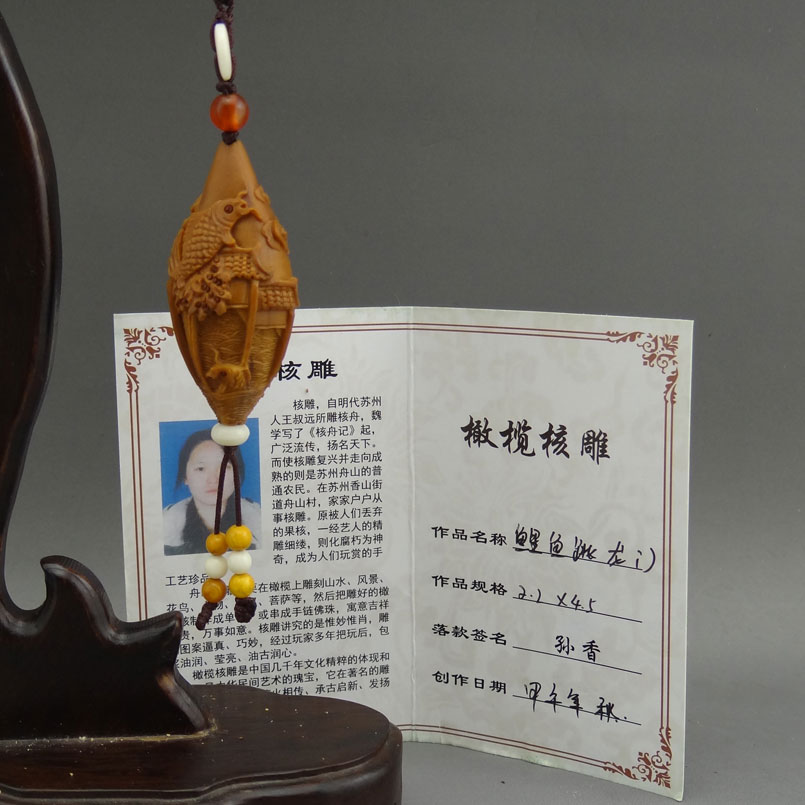 核雕
核雕，自明代苏州
人王叔远所雕核舟，魏
学写了《核舟记》起，
广泛流传，扬名天下。
而使核雕复兴并走向成
熟的则是苏州舟山的普
通农民。在苏州香山街
道舟山村，家家户户从
事核雕。原被人们丢弃
的果核，一经艺人的精
雕细缕，则化腐朽为神
奇，成为人们玩赏的手
工艺珍品
舟 在橄榄上雕刻山水、风景、
花鸟、 物、 菩萨等，然后把雕好的橄
核制 成单 或串成手链佛珠，寓意吉祥
贵，万事如意。核雕讲究的是惟妙惟肖，雕
图案逼真、巧妙，经过玩家多年把玩后，包
油润、莹亮、油古润心。
橄榄核雕是中国几千年文化精粹的体现和
民间艺术的瑰宝，它在著名的雕
火相传、承古启新、发扬
橄榄核雕
作品名称 鲤鱼跳龙门
作品规格 2.2×4.5
落款签名 孙香
创作日期 甲午年秋.